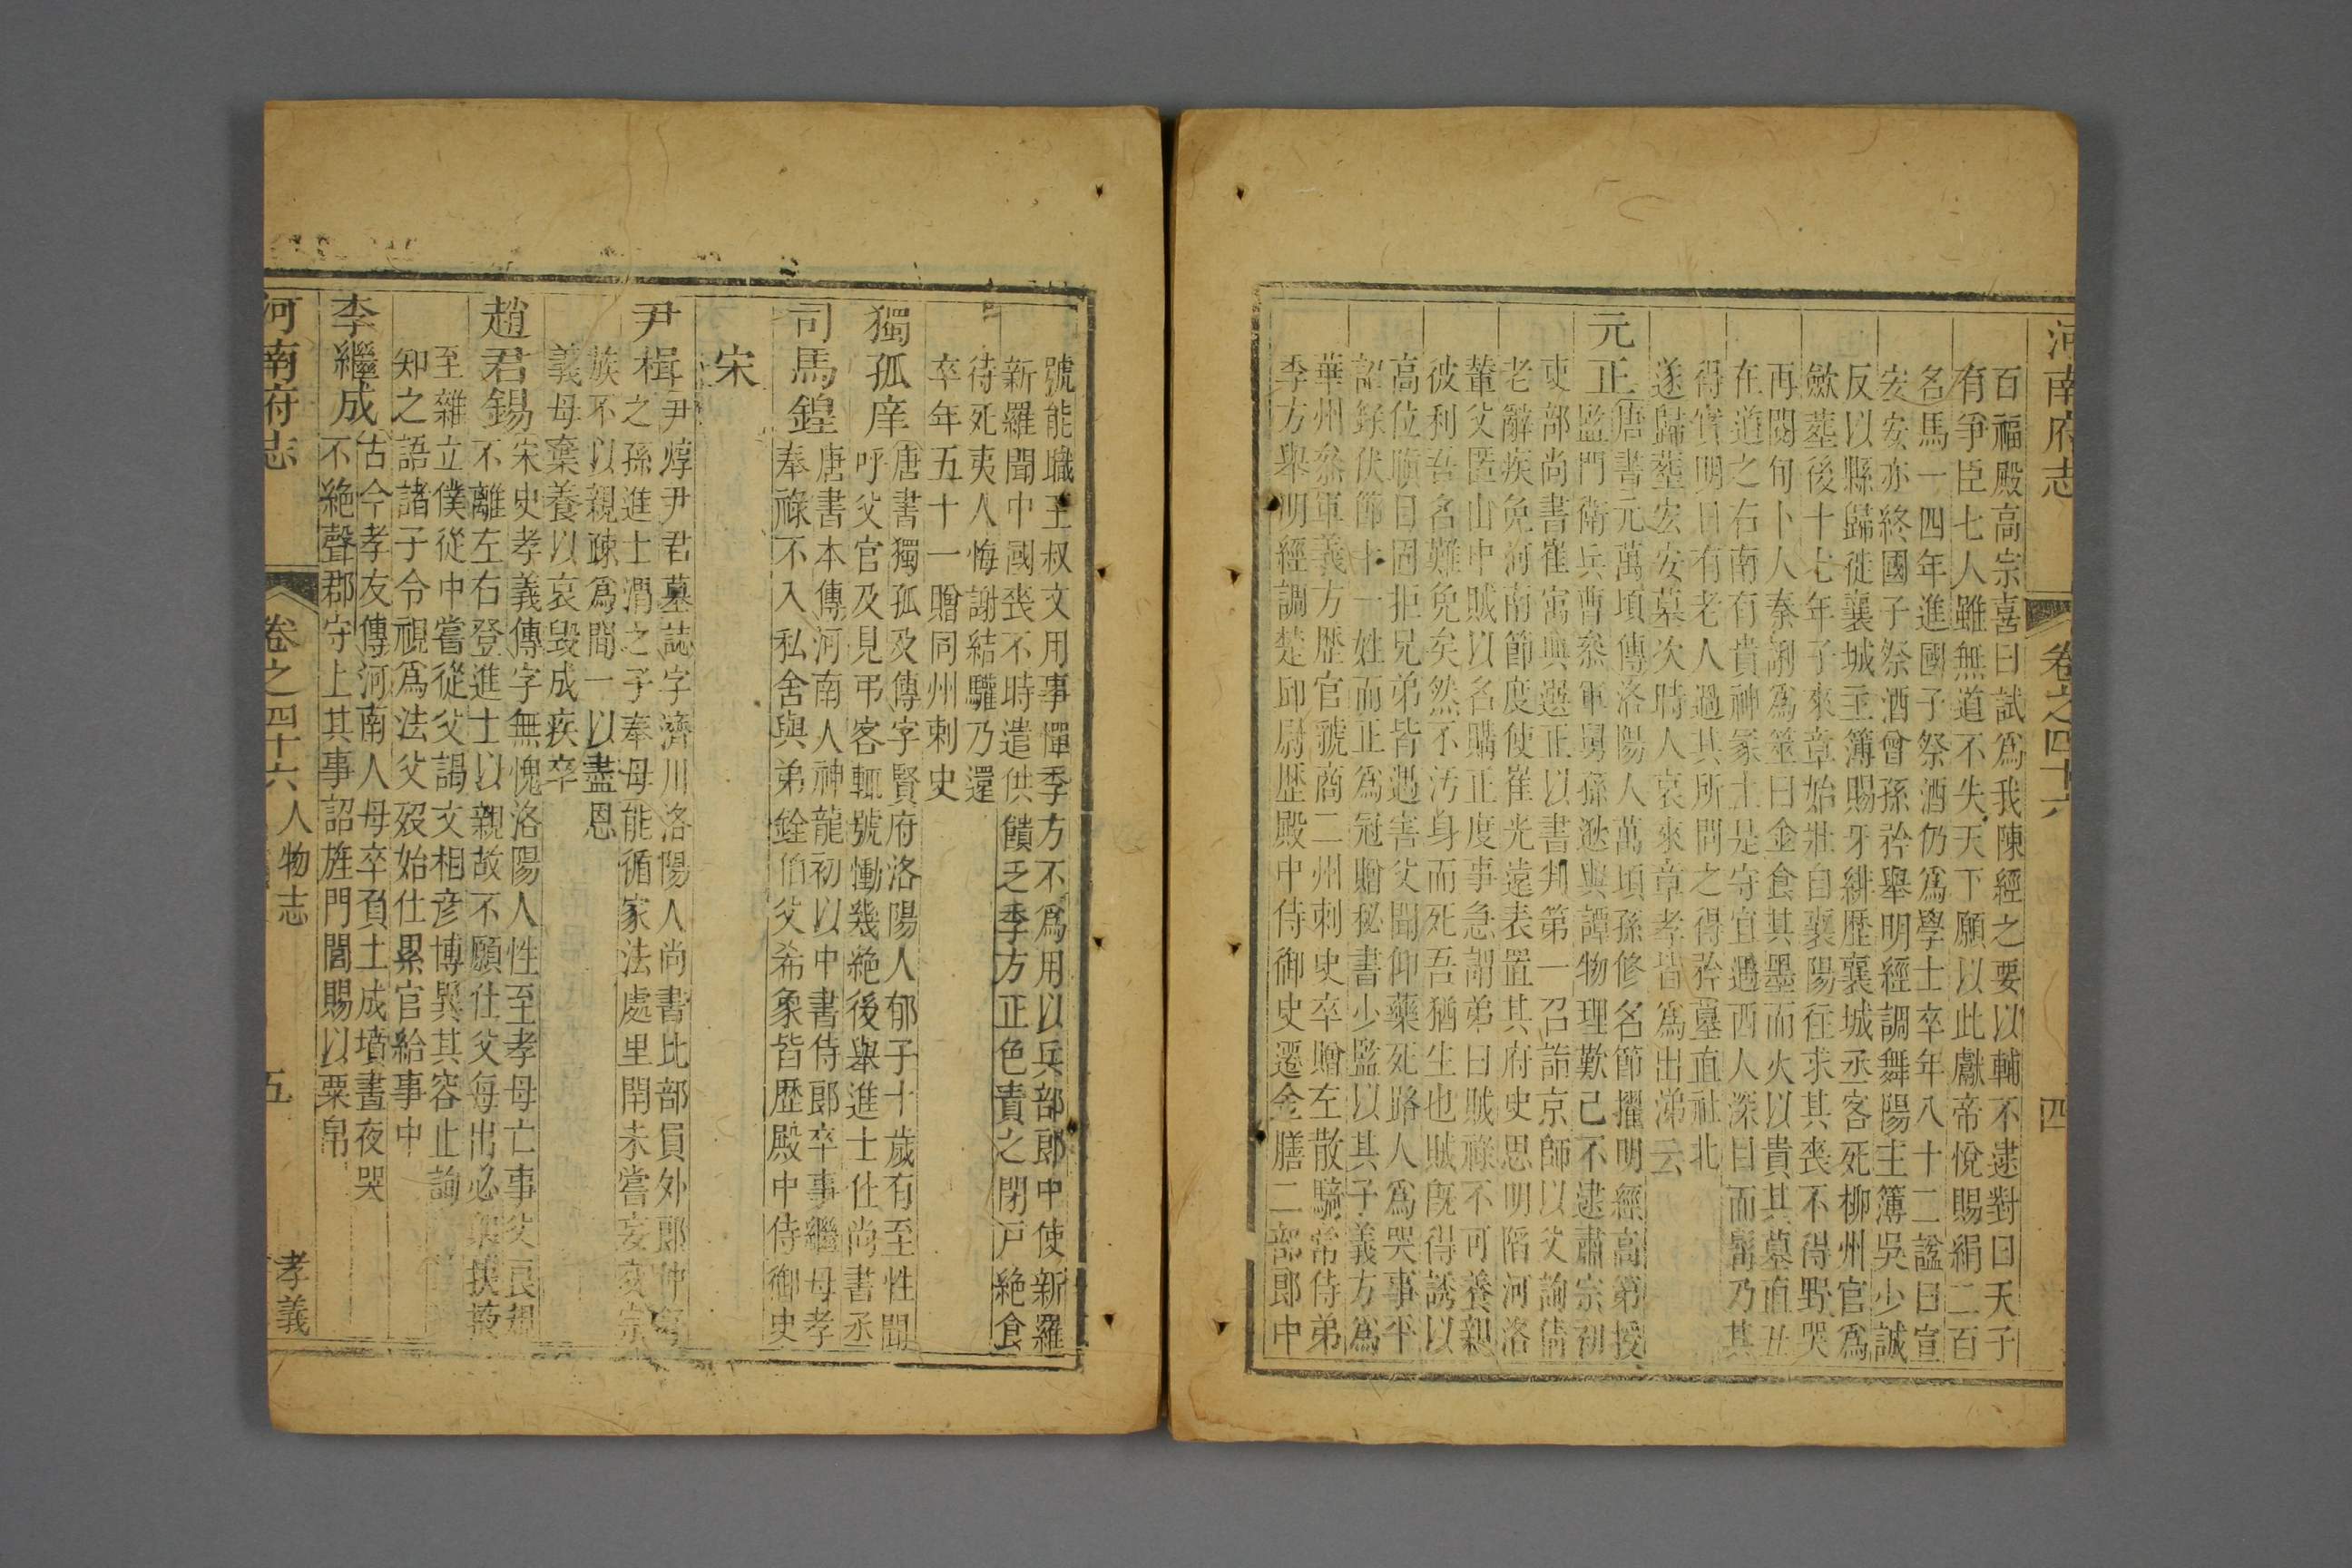 河南府志
卷之四十六
四
百福殿高宗喜曰試爲我陳經之要以輔不逮對曰天子
有爭臣七人雖無道不失天下願以此獻帝悅賜絹二百
名馬一四年進國子祭酒仍爲學士卒年八十二諡曰宣
宏安亦終國子祭酒曾孫矜舉明經調舞陽主簿吳少誠
反以縣歸徙襄城主簿賜牙緋歷襄城丞客死柳州官爲
歛葬後十七年子來章始壯自襄陽往求其喪不得野哭
再閱旬卜人秦誗爲筮曰金食其墨而火以貴其墓直丑
在道之右南有貴神冢土是守宜遇西人深目而髯乃其
得實明日有老人過其所問之得矜墓直社北
遂歸葬宏安墓次時人哀來章孝皆爲出涕云
元正
唐書元萬頃傳洛陽人萬頃孫修名節擢明經高第授
監門衛兵曹叅軍舅孫逖與譚物理歎己不逮肅宗初
吏部尚書崔寓典選正以書判第一召詣京師以父詢倩
老辭疾免河南節度使崔光遠表置其府史思明陷河洛
輦父匿山中賊以名購正度事急謂弟曰賊祿不可養親
彼利吾名難免矣然不汚身而死吾猶生也賊旣得誘以
高位瞋目固拒兄弟皆遇害父聞仰藥死路人爲哭事平
詔錄伏節十一姓而正爲冠贈秘書少監以其子義方爲
華州叅軍義方歷官虢商二州刺史卒贈左散騎常侍弟
季方舉明經調楚邱尉歷殿中侍御史遷金膳二部郎中
號能職王叔文用事憚季方不爲用以兵部郎中使新羅
新羅聞中國喪不時遣供饋乏季方正色責之閉戶絶食
待死夷人悔謝結驩乃還
卒年五十一贈同州刺史
獨孤庠
唐書獨孤及傳字賢府洛陽人郁子十歲有至性聞
呼父官及見弔客輒號慟幾絶後舉進士仕尚書丞
司馬鍠
唐書本傳河南人神龍初以中書侍郎卒事繼母孝
奉祿不入私舍與弟銓伯父希象皆歷殿中侍御史
宋
尹楫
尹焞尹君墓誌字濟川洛陽人尚書比部員外郎仲
之孫進士澗之子奉母能循家法處里閈未嘗妄
族不以親疎爲間一以盡恩
義母棄養以哀毀成疾卒
趙君錫
宋史孝義傳字無愧洛陽人性至孝母亡事父良規
不離左右登進士以親故不願仕父每出必扶掖
至雜立僕從中嘗從父謁文相彦博異其容止詢
知之語諸子令視爲法父歿始仕累官給事中
李繼成
古今孝友傳河南人母卒負土成墳晝夜哭
不絶聲郡守上其事詔旌門閭賜以粟帛
河南府志
卷之四十六
人物志
孝義
五